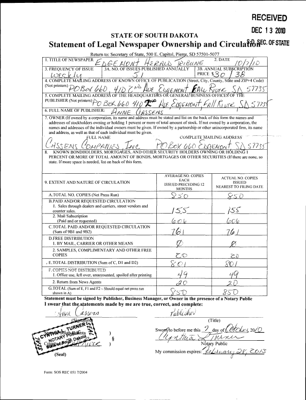 RECEIVED
DEC 13 2010
S.D. SEC. OF STATE
STATE OF SOUTH DAKOTA
Statement of Legal Newspaper Ownership and Circulation
Return to: Secretary of State, 500 E. Capitol, Pierre, SD 57501-5077
1. TITLE OF NEWSPAPER EDGEMONT HERALD TRIBUNE
2. FREQUENCY OF ISSUE
weekly
3A. NO. OF ISSUES PUBLISHED ANNUALLY
51
3B. ANNUAL SUBSCRIPTION
PRICE $30/38
4. COMPLETE MAILING ADDRESS OF KNOWN OFFICE OF PUBLICATION (Street, City, County, State and ZIP+4 Code)
(Not printers) PO BOX 660 410 2nd Ave Edgemont Fall River SD 57735
5. COMPLETE MAILING ADDRESS OF THE HEADQUARTERS OF GENERAL BUSINESS OFFICE OF THE
PUBLISHER (Not printer) PO BOX 660 410 2nd Ave Edgemont, Fall River SD 57735
6. FULL NAME OF PUBLISHER: ANNE CASSENS
7. OWNER (If owned by a corporation, its name and address must be stated and also the names and
addresses of stockholders owning or holding 1 percent or more of total amount of stock. If not owned by a corporation, the
names and addresses of the individual owners must be given. If owned by a partnership or other unincorporated firm, its name
and address, as well as that of each individual must be given.
FULL NAME COMPLETE MAILING ADDRESS
Cassens Companies Inc. PO BOX 660 Edgemont SD 57735
8. KNOWN BONDHOLDERS, MORTGAGEES, AND OTHER SECURITY HOLDERS OWNING OR HOLDING 1
PERCENT OR MORE OF TOTAL AMOUNT OF BONDS, MORTGAGES OR OTHER SECURITIES (If there are none, so
state. If more space is needed, list on back of this form.
9. EXTENT AND NATURE OF CIRCULATION
AVERAGE NO. COPIES
EACH
ISSUED PRECEDING 12
MONTHS
ACTUAL NO. COPIES
ISSUED
NEAREST TO FILING DATE
A. TOTAL NO. COPIES (Net Press Run) 850 850
B. PAID AND/OR REQUESTED CIRCULATION
1. Sales through dealers and carriers, street vendors and
counter sales. 155 155
2. Mail Subscription
(Paid and or requested) 606 606
C. TOTAL PAID AND/OR REQUESTED CIRCULATION
(Sum of 9B1 and 9B2) 761 761
D. FREE DISTRIBUTION
1. BY MAIL, CARRIER OR OTHER MEANS
2. SAMPLES, COMPLIMENTARY AND OTHER FREE
COPIES 20 20
E. TOTAL DISTRIBUTION (Sum of C, D1 and D2) 801 801
F. COPIES NOT DISTRIBUTED
1. Office use, left over, unaccounted, spoiled after printing 49 49
2. Return from News Agents 20 20
G. TOTAL (Sum of E, F1 and F2 - Should equal net press run
shown in A) 850 850
Statement must be signed by Publisher, Business Manager, or Owner in the presence of a Notary Public
I swear that the statements made by me are true, correct, and complete:
Anne Cassens Publisher
(Title)
Sworn to before me this day of October 2010
Cynthia L. Turner
Notary Public
My commission expires: February 28, 2013
CYNTHIA L. TURNER
NOTARY PUBLIC
(Seal)
Form: SOS REC 051 7/2004